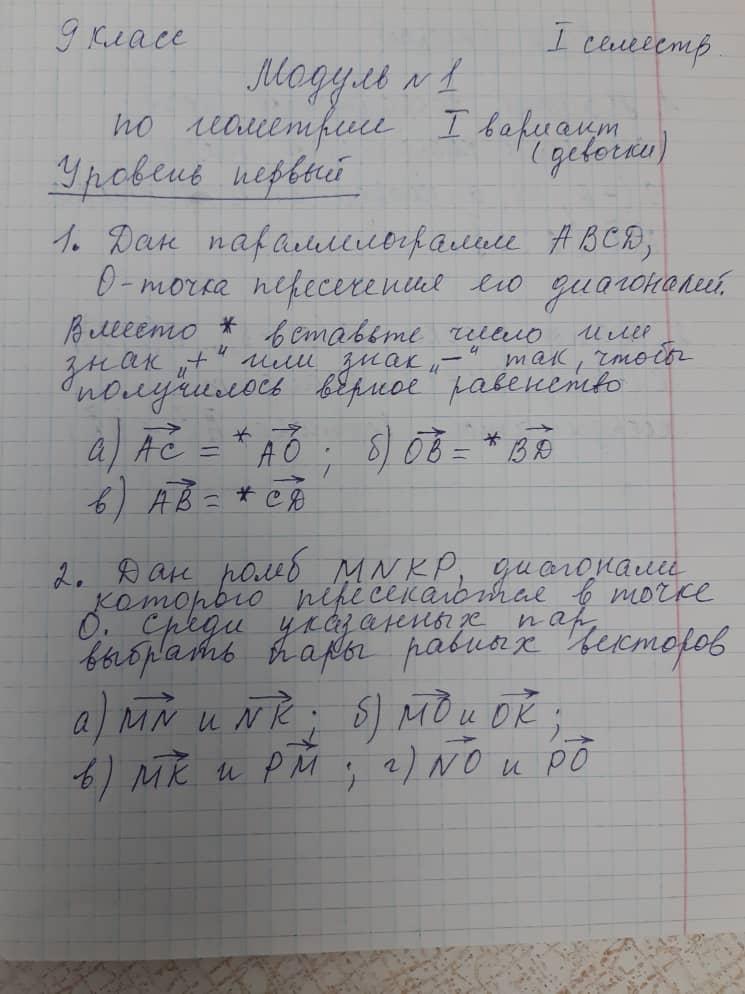 9 класс I семестр
Модуль №1
по геометрии I вариант
(девочки)
Уровень первый
1. Дан параллелограмм ABCD,
О-точка пересечения его диагоналей.
Вместо * вставьте число или
знак „+“ или знак „—“ так, чтобы
получилось верное равенство
а) AC→ = * AO→ ; б) OB→ = * BD→
в) AB→ = * CD→
2. Дан ромб MNKP, диагонали
которого пересекаются в точке
О. Среди указанных пар
выбрать пары равных векторов
а) MN→ и NK→ ; б) MO→ и OK→ ;
в) MK→ и PM→ ; г) NO→ и PO→